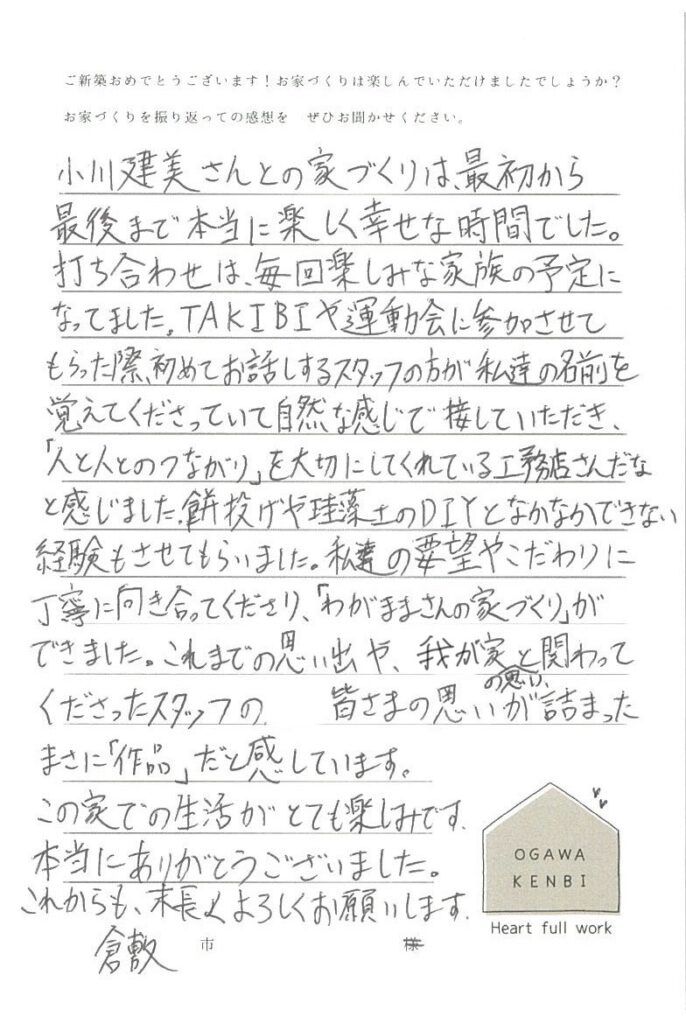 ご新築おめでとうございます！お家づくりは楽しんでいただけましたでしょうか？
お家づくりを振り返っての感想を　ぜひお聞かせください。
小川建美さんとの家づくりは、最初から
最後まで本当に楽しく幸せな時間でした。
打ち合わせは、毎回楽しみな家族の予定に
なってました。TAKIBIや運動会に参加させて
もらった際、初めてお話しするスタッフの方が私達の名前を
覚えてくださっていて自然な感じで接していただき、
「人と人とのつながり」を大切にしてくれている工務店さんだな
と感じました。餅投げや珪藻土のDIYとなかなかできない
経験もさせてもらいました。私達の要望やこだわりに
丁寧に向き合ってくださり、「わがままさんの家づくり」が
できました。これまでの思い出や、我が家と関わって
くださったスタッフの　皆さまの思いが詰まった
の思い、
まさに「作品」だと感じています。
この家での生活がとても楽しみです。
本当にありがとうございました。
これからも、末長くよろしくお願いします。
倉敷 市 様
OGAWA
KENBI
Heart full work